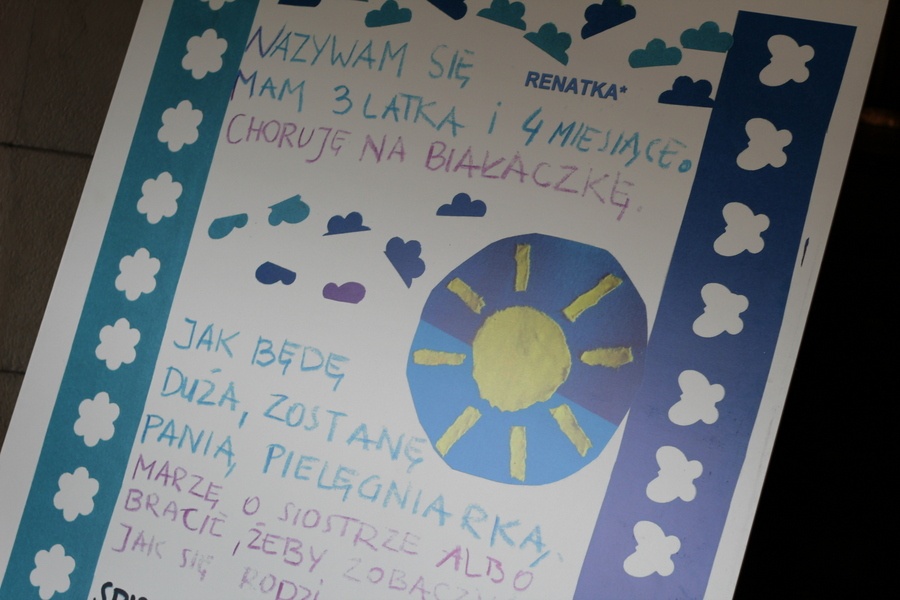 NAZYWAM SIĘ
RENATKA*
MAM 3 LATKA i 4 MIESIĄCE.
CHORUJĘ NA BIAŁACZKĘ.
JAK BĘDĘ
DUŻA, ZOSTANĘ
PANIĄ, PIELĘGNIARKĄ,
MARZĘ O SIOSTRZE ALBO
BRACIE, ŻEBY ZOBACZYĆ
JAK SIĘ